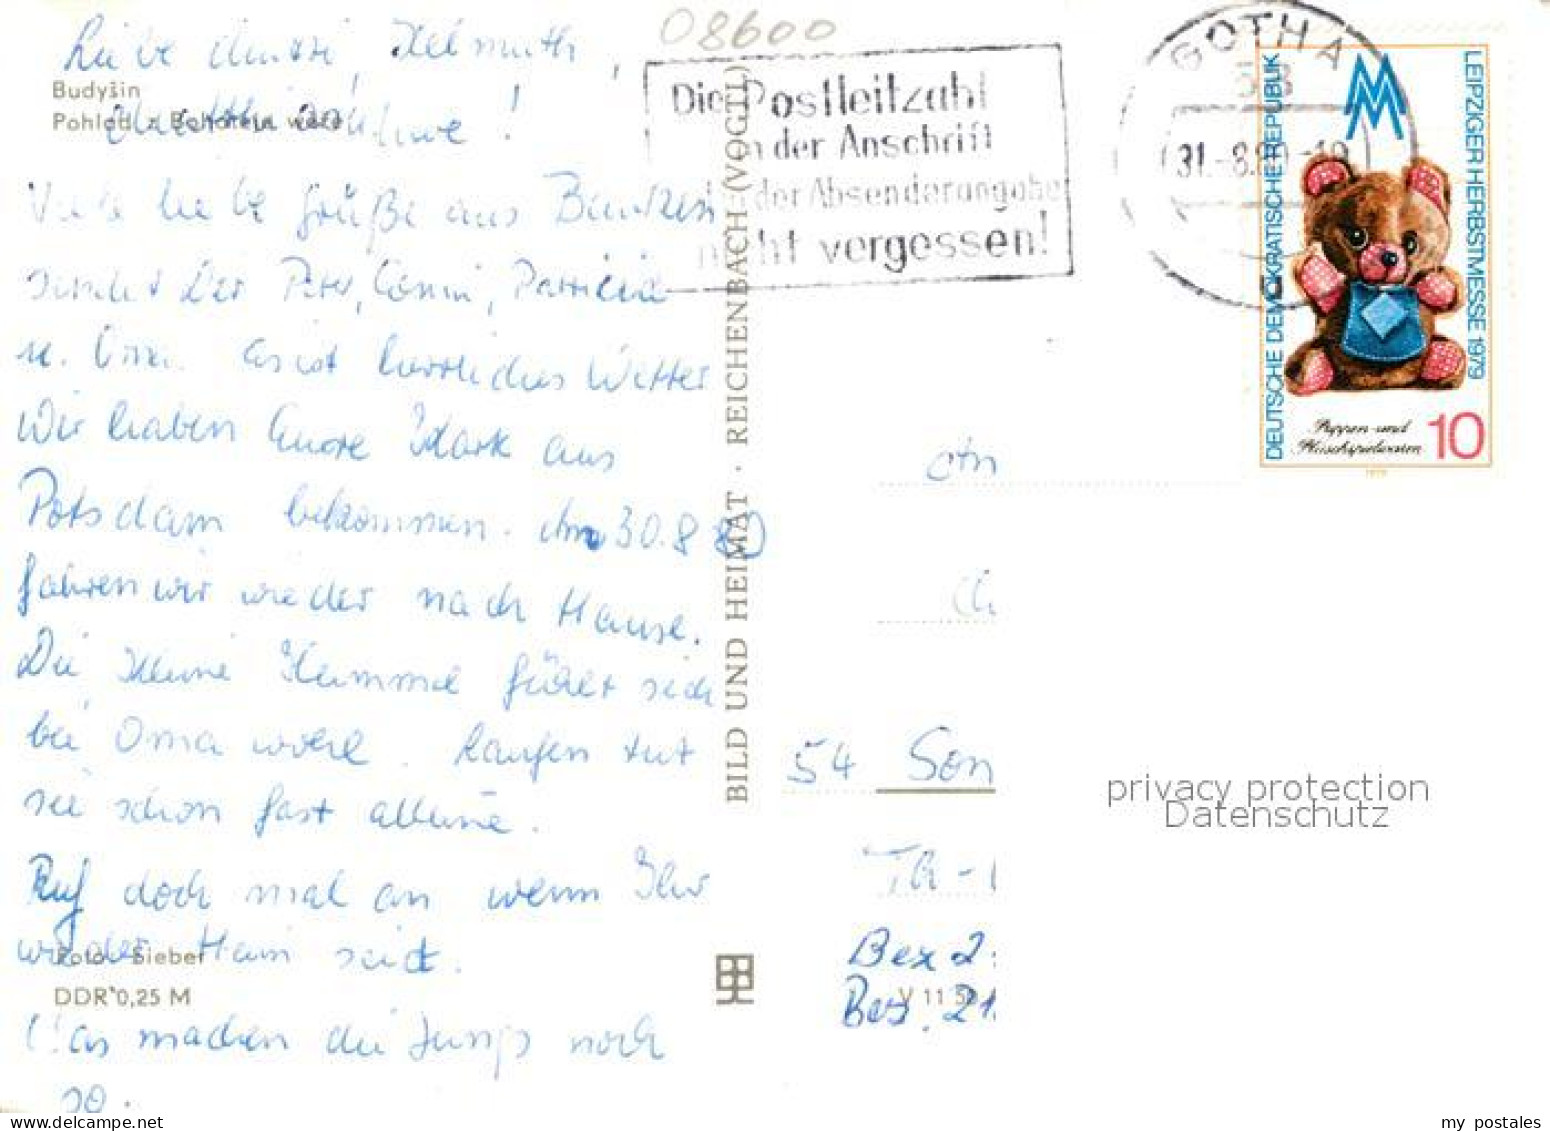 08600
Liebe Mutti, Helmuth,
Budyšin
Pohlad z Bohateje wěže
!
Viele liebe Grüße aus Bautzen
sendet Dir Peter, Conni, Patricia
u. Oma. Es ist herrliches Wetter
Wir haben Eure Karte aus
Potsdam bekommen. Am 30.8.80
fahren wir wieder nach Hause.
Die kleine Hummel fühlt sich
bei Oma wohl. Laufen tut
sie schon fast alleine.
Ruf doch mal an wenn Ihr
wieder Heim seid.
Foto: Sieber
DDR 0,25 M
Was machen die Jungs noch
so.
BILD UND HEIMAT · REICHENBACH (VOGTL)
Die Postleitzahl
in der Anschrift
der Absenderangabe
nicht vergessen!
GOTHA
31.-8.80-19
DEUTSCHE DEMOKRATISCHE REPUBLIK
LEIPZIGER HERBSTMESSE 1979
Puppen- und
Plüschspielwaren
10
1979
An
54 Son
Th-
Bex 2
V 11 50
Bes. 21.
privacy protection
Datenschutz
my postales